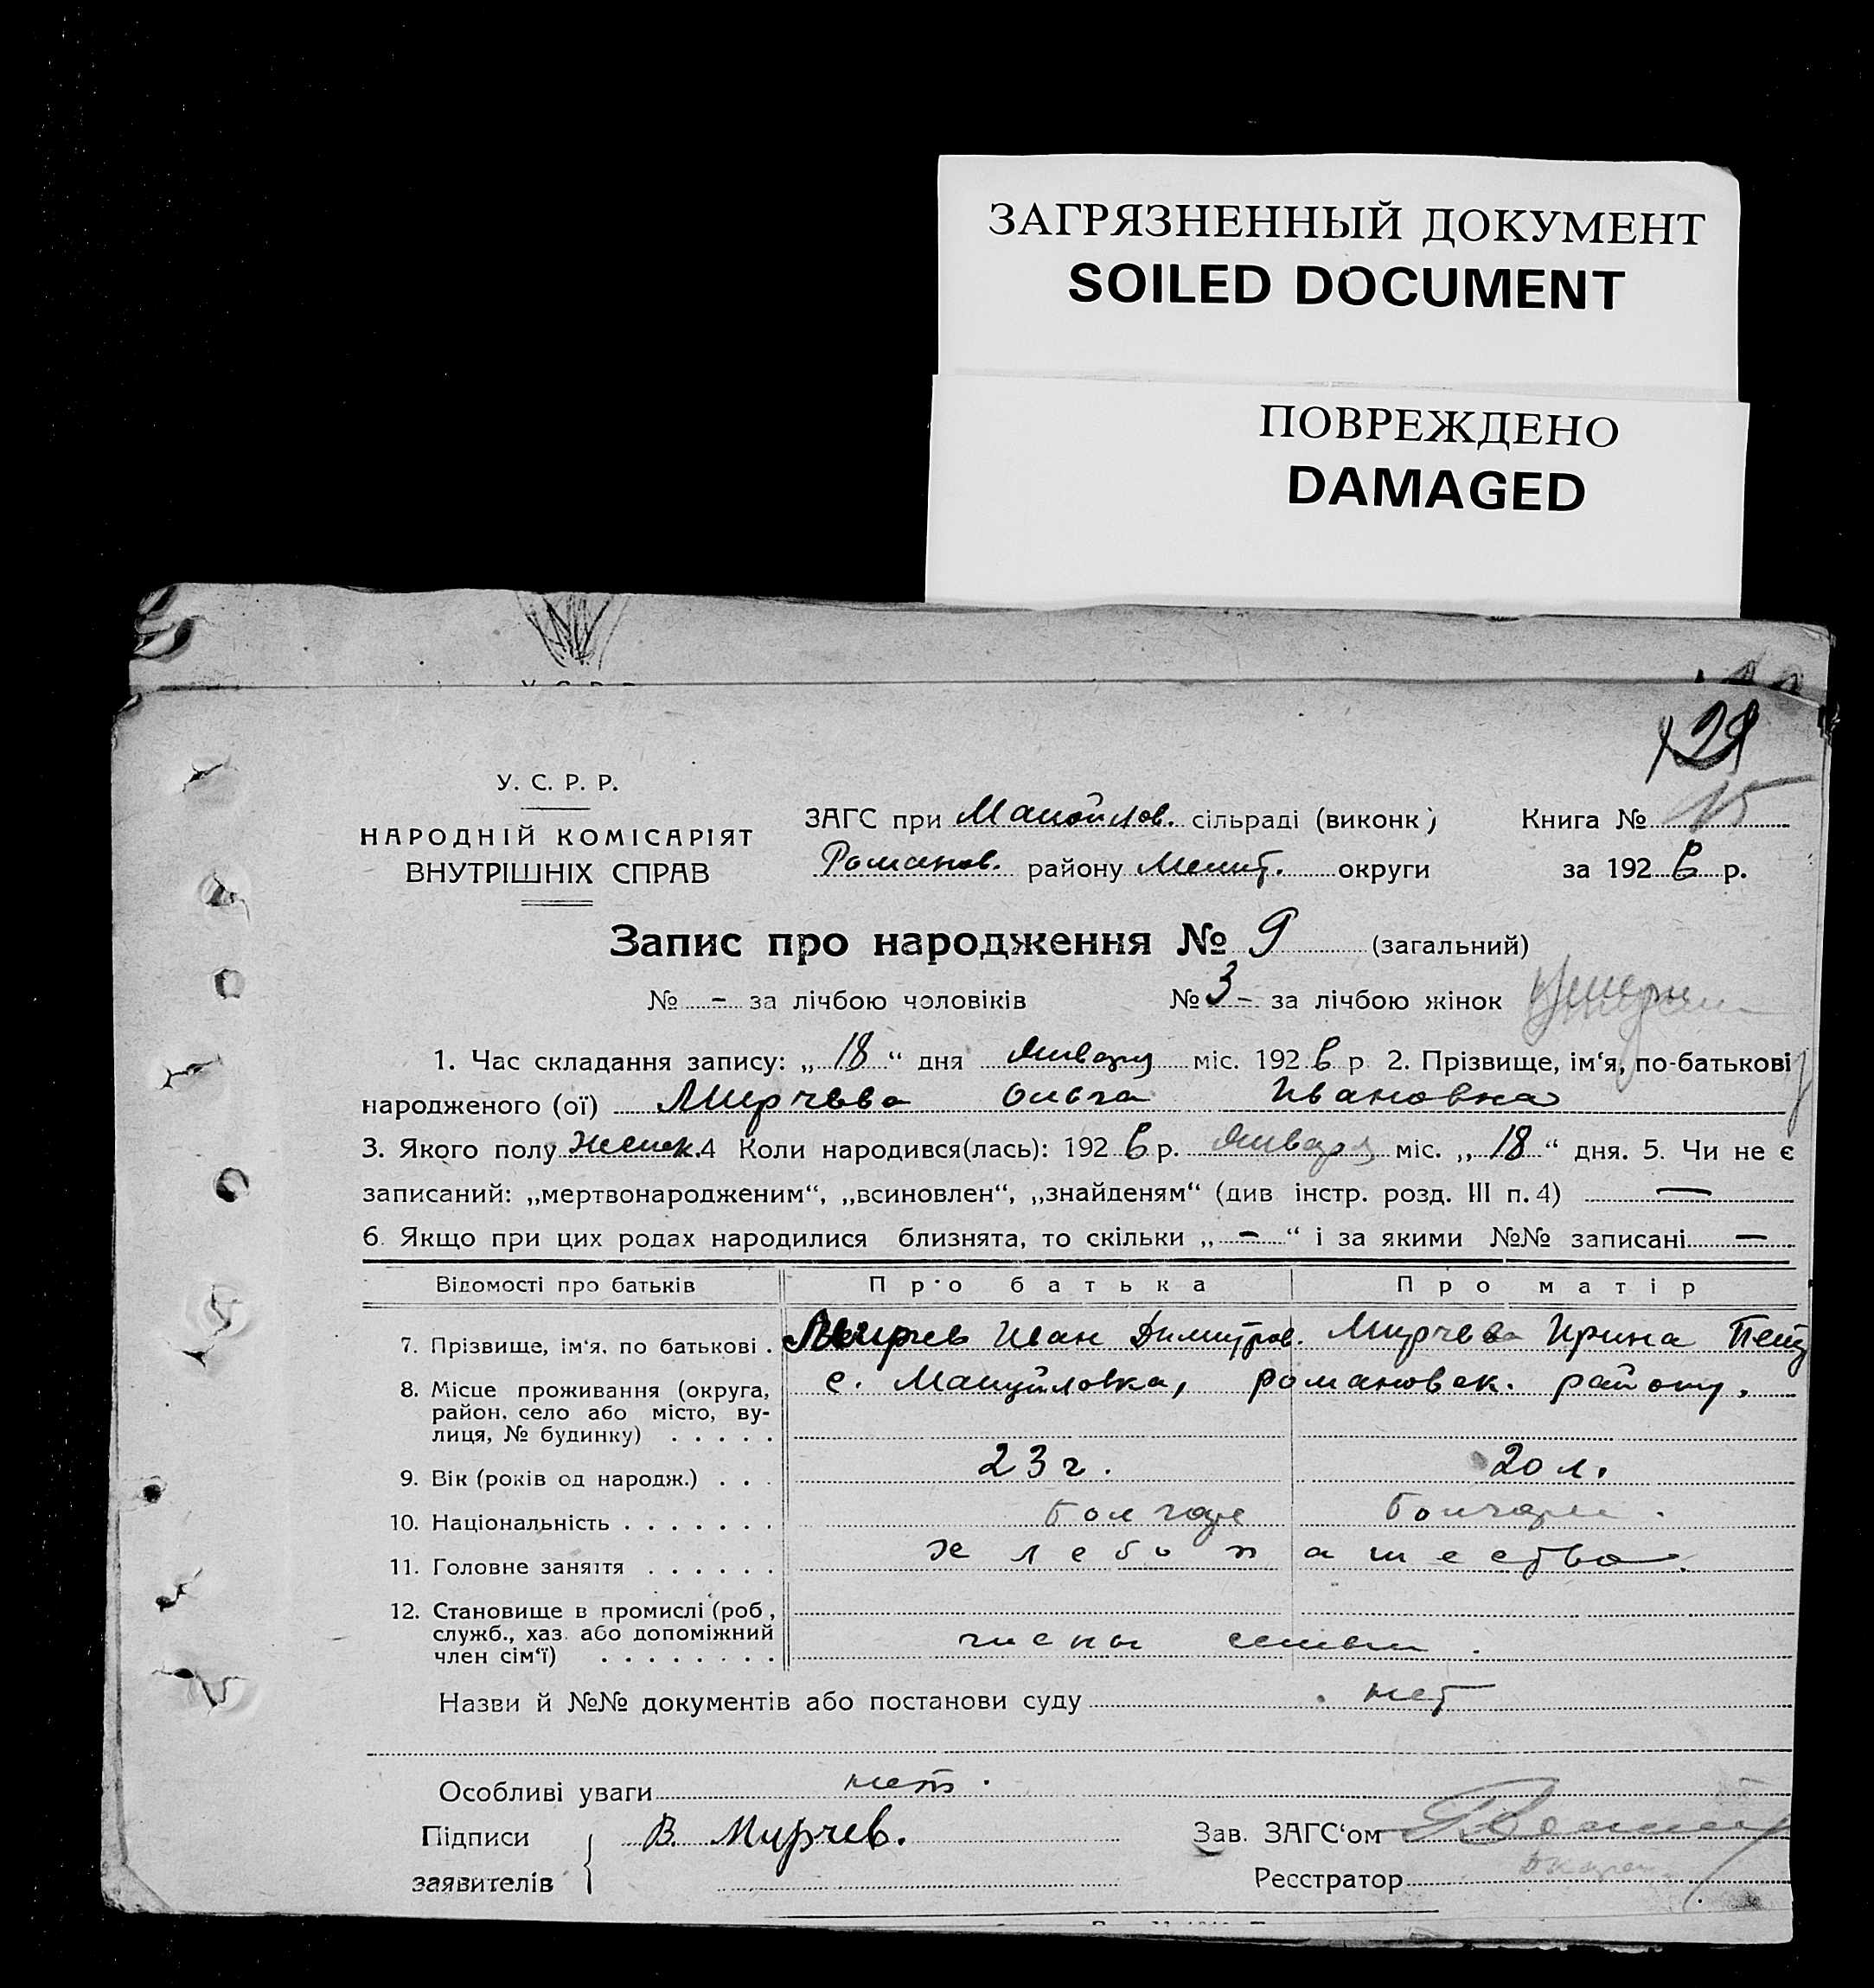 ЗАГРЯЗНЕННЫЙ ДОКУМЕНТ
SOILED DOCUMENT
ПОВРЕЖДЕНО
DAMAGED
У. С. Р. Р.
НАРОДНІЙ КОМІСАРІЯТ
ВНУТРІШНІХ СПРАВ
ЗАГС при Манойлов. сільраді (виконк)
Романов. району Мелит. округи
Книга № 15
за 1926 р.
Запис про народження № 9 (загальний)
№ - за лічбою чоловіків № 3 - за лічбою жінок
1. Час складання запису: „ 18 “ дня января міс. 1926 р 2. Прізвище, ім‘я, по-батькові
народженого (ої) Мирчева Ольга Ивановна
3. Якого полу женск. 4 Коли народився(лась): 1926 р. января міс. „ 18 “ дня. 5. Чи не є
записаний: „мертвонародженим“, „всиновлен“, „знайденям“ (див інстр. розд. III п. 4) —
6. Якщо при цих родах народилися близнята, то скільки „ — “ і за якими №№ записані —
Відомості про батьків Про батька Про матір
7. Прізвище, ім‘я, по батькові . Мирчев Иван Димитров. Мирчева Ирина Петр
8. Місце проживання (округа, с. Мануйловка, романовск. району.
район, село або місто, ву-
лиця, № будинку) . . . . .
9. Вік (років од народж.) . . . 23 г. 20 л.
10. Національність . . . . . . . болгаре болгаре.
11. Головне заняття . . . . . . хлебопашество.
12. Становище в промислі (роб,
служб., хаз. або допоміжний
член сім‘ї) . . . . . . . . члены семьи.
Назви й №№ документів або постанови суду нет
Особливі уваги нет.
Підписи В. Мирчев. Зав. ЗАГС‘ом
заявителів Ресстратор